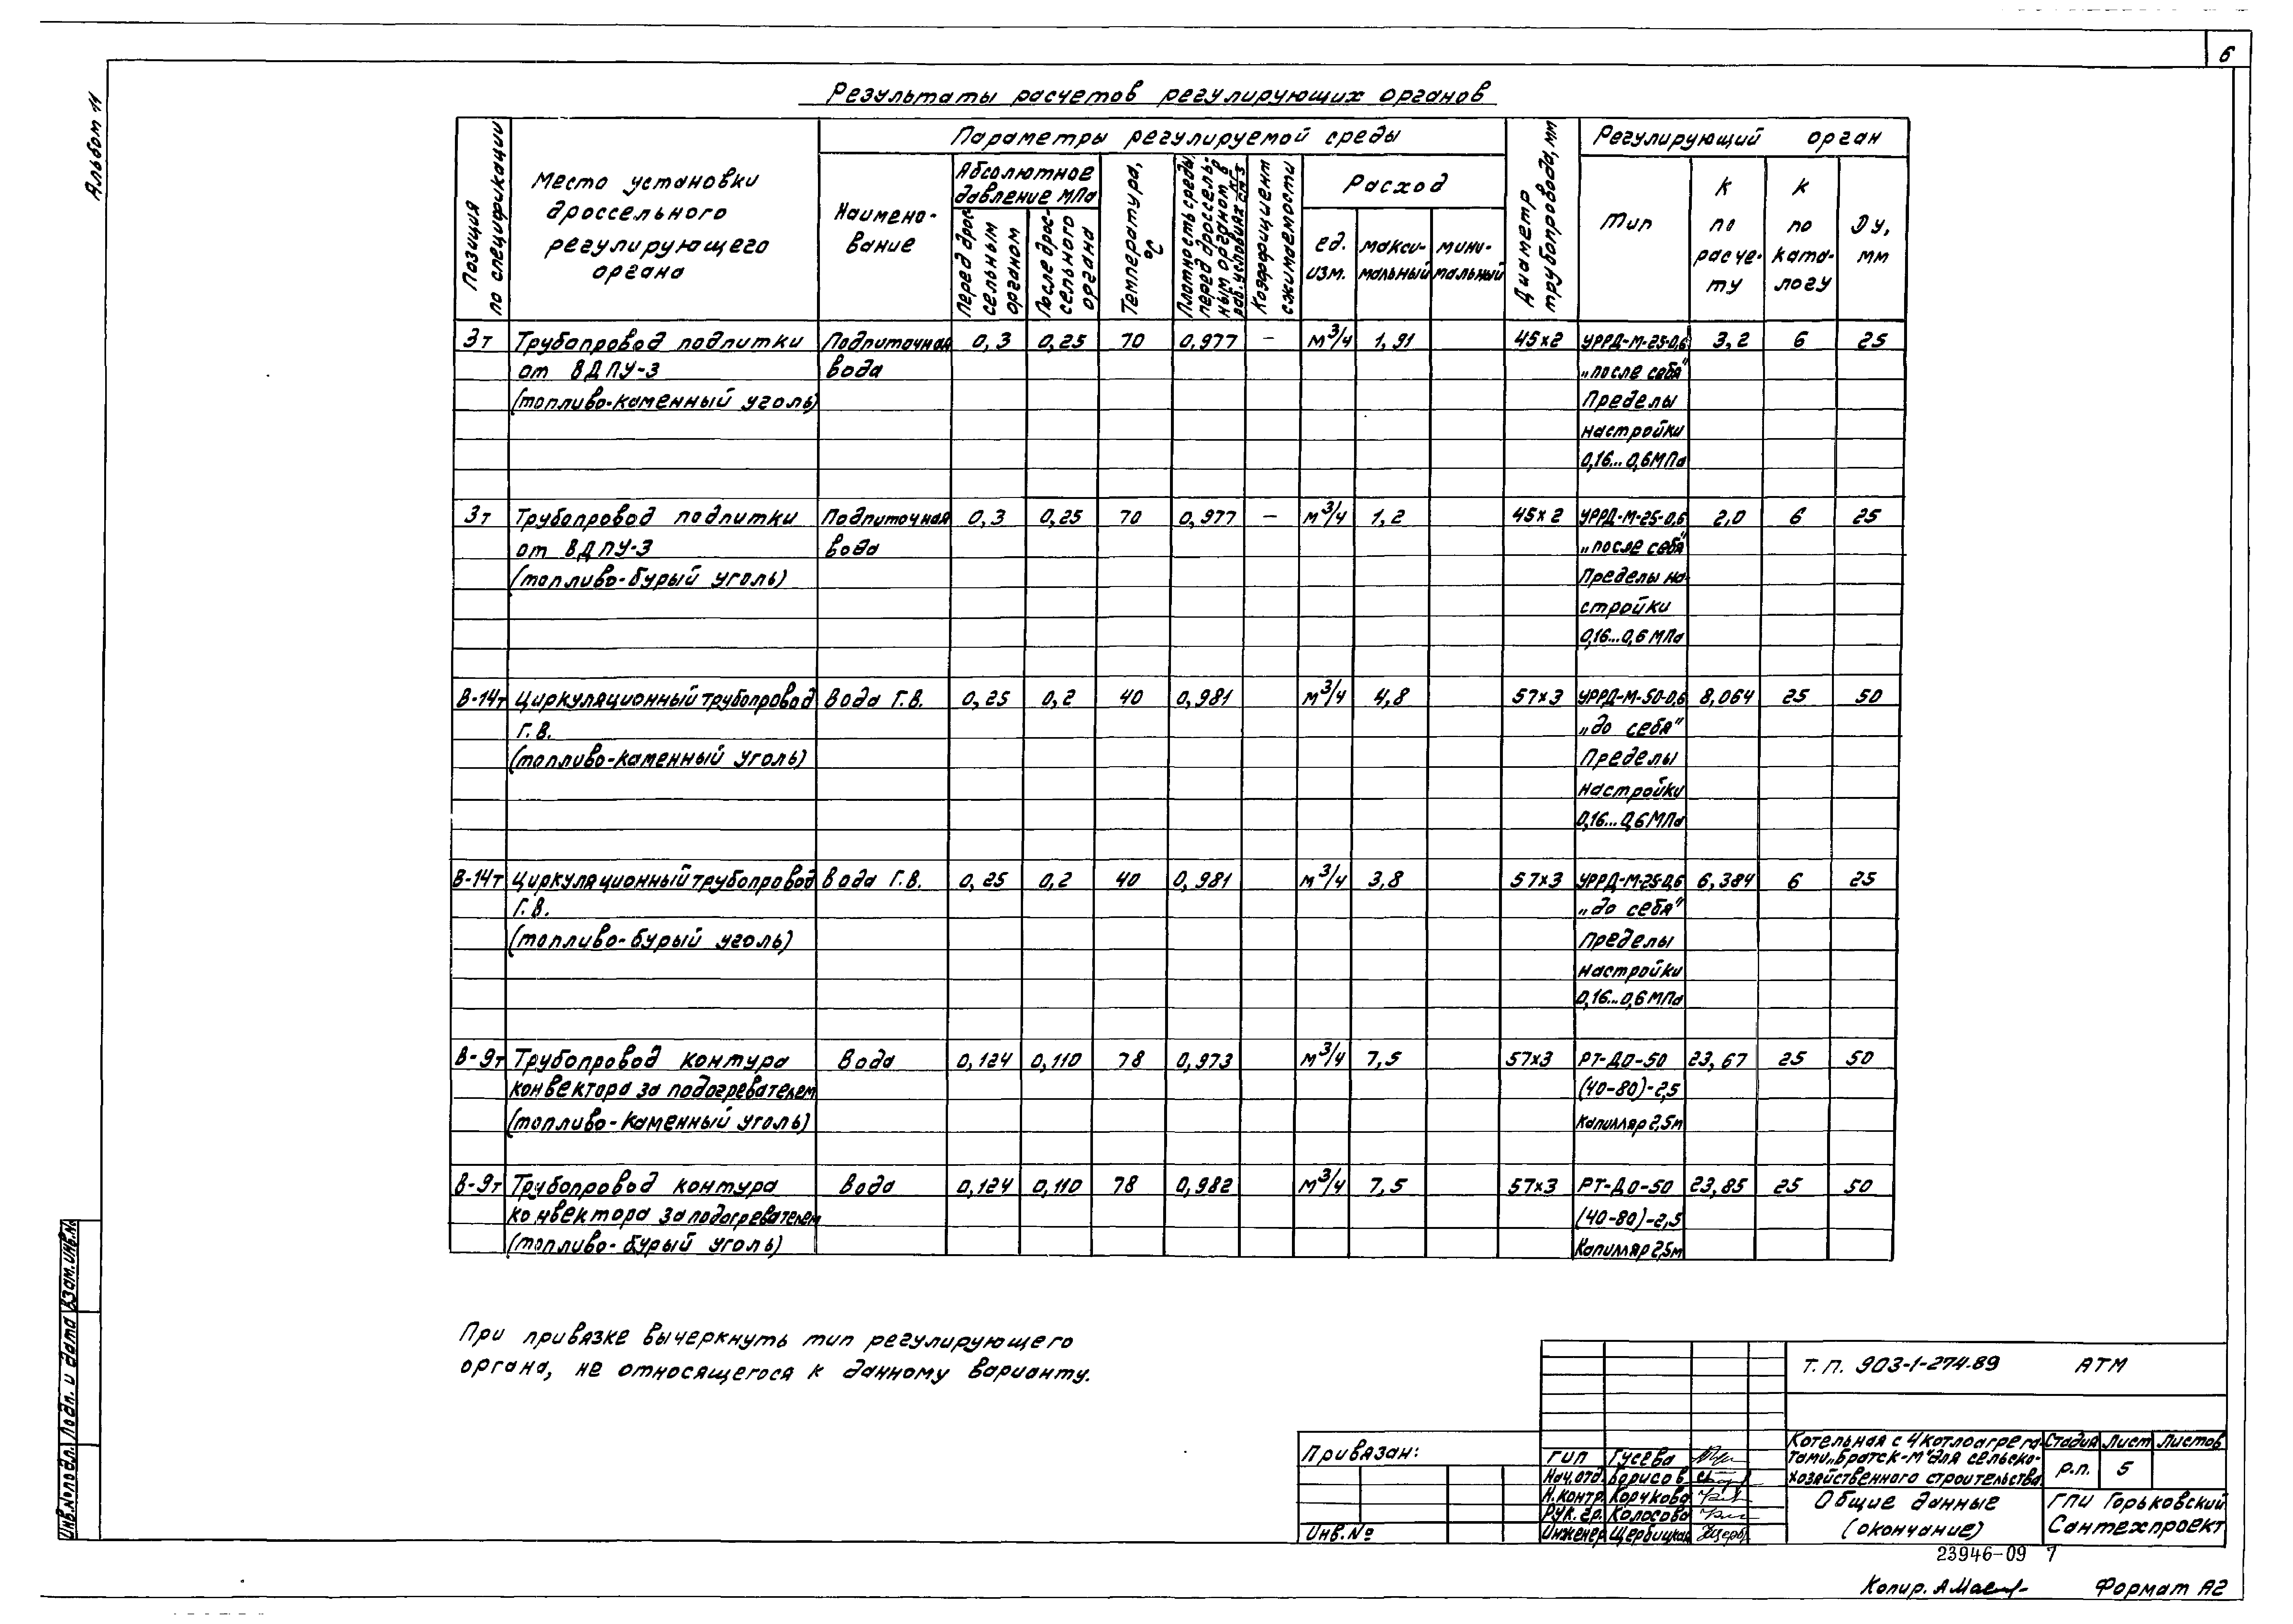 6
Альбом 11
Результаты расчетов регулирующих органов
Позиция по спецификации
Место установки дроссельного регулирующего органа
Параметры регулируемой среды
Наимено-
вание
Абсолютное давление МПа
Перед дрос-
сельным
органом
После дрос-
сельного
органа
Температура, °С
Плотность среды
перед дроссель-
ным органом в
раб. условиях
Коэффициент
сжимаемости
Расход
ед. изм.
макси-
мальный
мини-
мальный
Диаметр
трубопровода, мм
Регулирующий орган
Тип
К по расче-
ту
К по ката-
логу
Ду, мм
3т Трубопровод подпитки Подпиточная 0,3 0,25 70 0,977 – м3/ч 1,91 45х2 УРРД-М-25-0,6 3,2 6 25
от ВДПУ-3 вода „после себя"
(топливо-каменный уголь) Пределы
настройки
0,16...0,6МПа
3т Трубопровод подпитки Подпиточная 0,3 0,25 70 0,977 – м3/ч 1,2 45х2 УРРД-М-25-0,6 2,0 6 25
от ВДПУ-3 вода „после себя"
(топливо-бурый уголь) Пределы на-
стройки
0,16...0,6 МПа
В-14т Циркуляционный трубопровод Вода Г.В. 0,25 0,2 40 0,981 м3/ч 4,8 57х3 УРРД-М-50-0,6 8,064 25 50
Г.В. „до себя"
(топливо-каменный уголь) Пределы
настройки
0,16...0,6 МПа
В-14т Циркуляционный трубопровод Вода Г.В. 0,25 0,2 40 0,981 м3/ч 3,8 57х3 УРРД-М-25-0,6 6,384 6 25
Г.В. „до себя"
(топливо-бурый уголь) Пределы
настройки
0,16...0,6 МПа
В-9т Трубопровод контура Вода 0,124 0,110 78 0,973 м3/ч 7,5 57х3 РТ-ДО-50 23,67 25 50
конвектора за подогревателем (40-80)-2,5
(топливо-каменный уголь) Капилляр 2,5м
В-9т Трубопровод контура Вода 0,124 0,110 78 0,982 м3/ч 7,5 57х3 РТ-ДО-50 23,85 25 50
конвектора за подогревателем (40-80)-2,5
(топливо-бурый уголь) Капилляр 2,5м
При привязке вычеркнуть тип регулирующего
органа, не относящегося к данному варианту.
Инв.№подл. Подп. и дата Взам.инв.№
Привязан:
Инв.№
ГИП Гусева
Нач.отд. Борисов
Н.контр. Корчкова
Рук.гр. Колосова
Инженер Щербицкая
Т.П. 903-1-274.89 АТМ
Котельная с 4 котлоагрега-
тами „Братск-М" для сельско-
хозяйственного строительства
Стадия Лист Листов
Р.П. 5
Общие данные
(окончание)
ГПИ Горьковский
Сантехпроект
23946-09 7
Копир. Формат А2